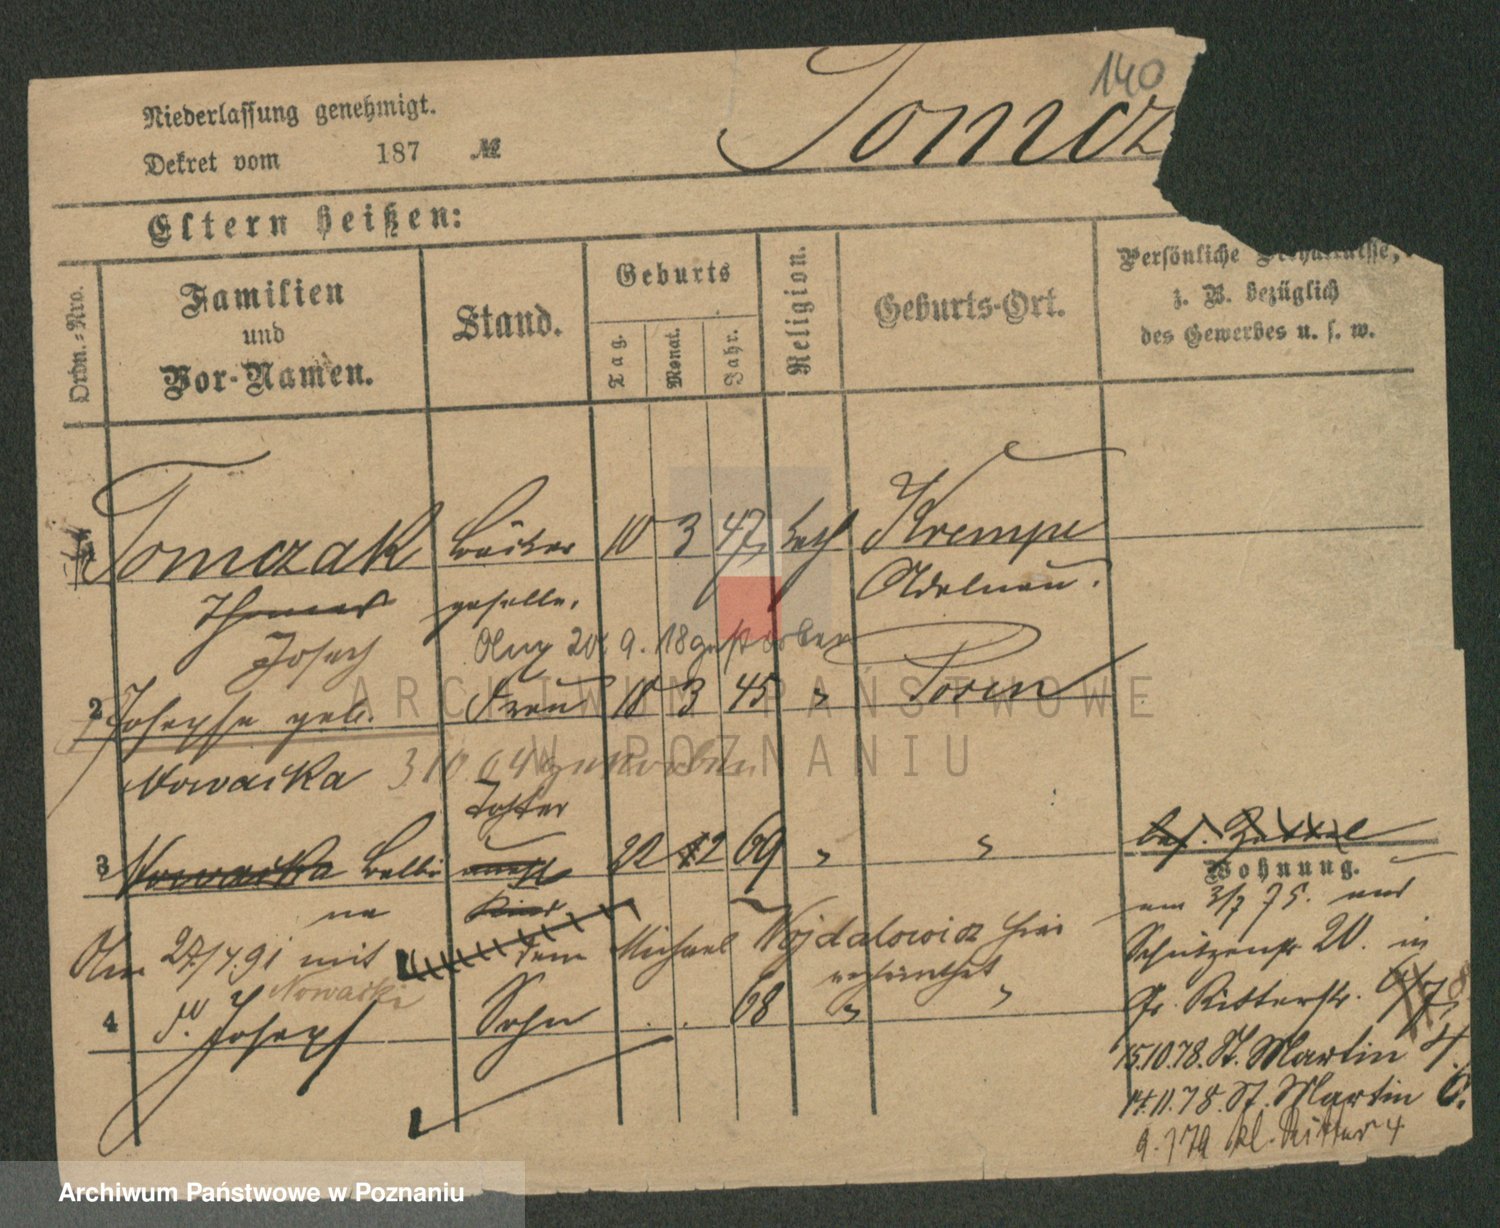 140
Niederlassung genehmigt.
Tomcz
Dekret vom 187 №
Eltern heißen:
Ordn.-Nro.
Familien und Vor-Namen.
Stand.
Geburts
Tag.
Monat.
Jahr.
Religion.
Geburts-Ort.
Persönliche
z. B. bezüglich
des Gewerbes u. s. w.
Tomczak Bäcker 10 3 47 kath Krempe
Thomas geselle. Adelnau.
Joseph 9. 18 gestorben
2 Josepha geb. Frau 10 3 45 " Posen
Nowaika 3 10 04 gestorben
Tochter
3 Nowaika Balbi 22 12 69 " "
na Kind
Wohnung.
am 3/7 75. und
Am 27/4 91 mit dem Michael Wojdalowicz hier
Schützenstr 20. in
verheirathet
Nowacki
4 Joseph Sohn 68 " "
Gr. Ritterstr.
15.10.78. St. Martin 4.
14.11.78. St. Martin 6.
kl. Ritter 4
ARCHIWUM PAŃSTWOWE
W POZNANIU
Archiwum Państwowe w Poznaniu